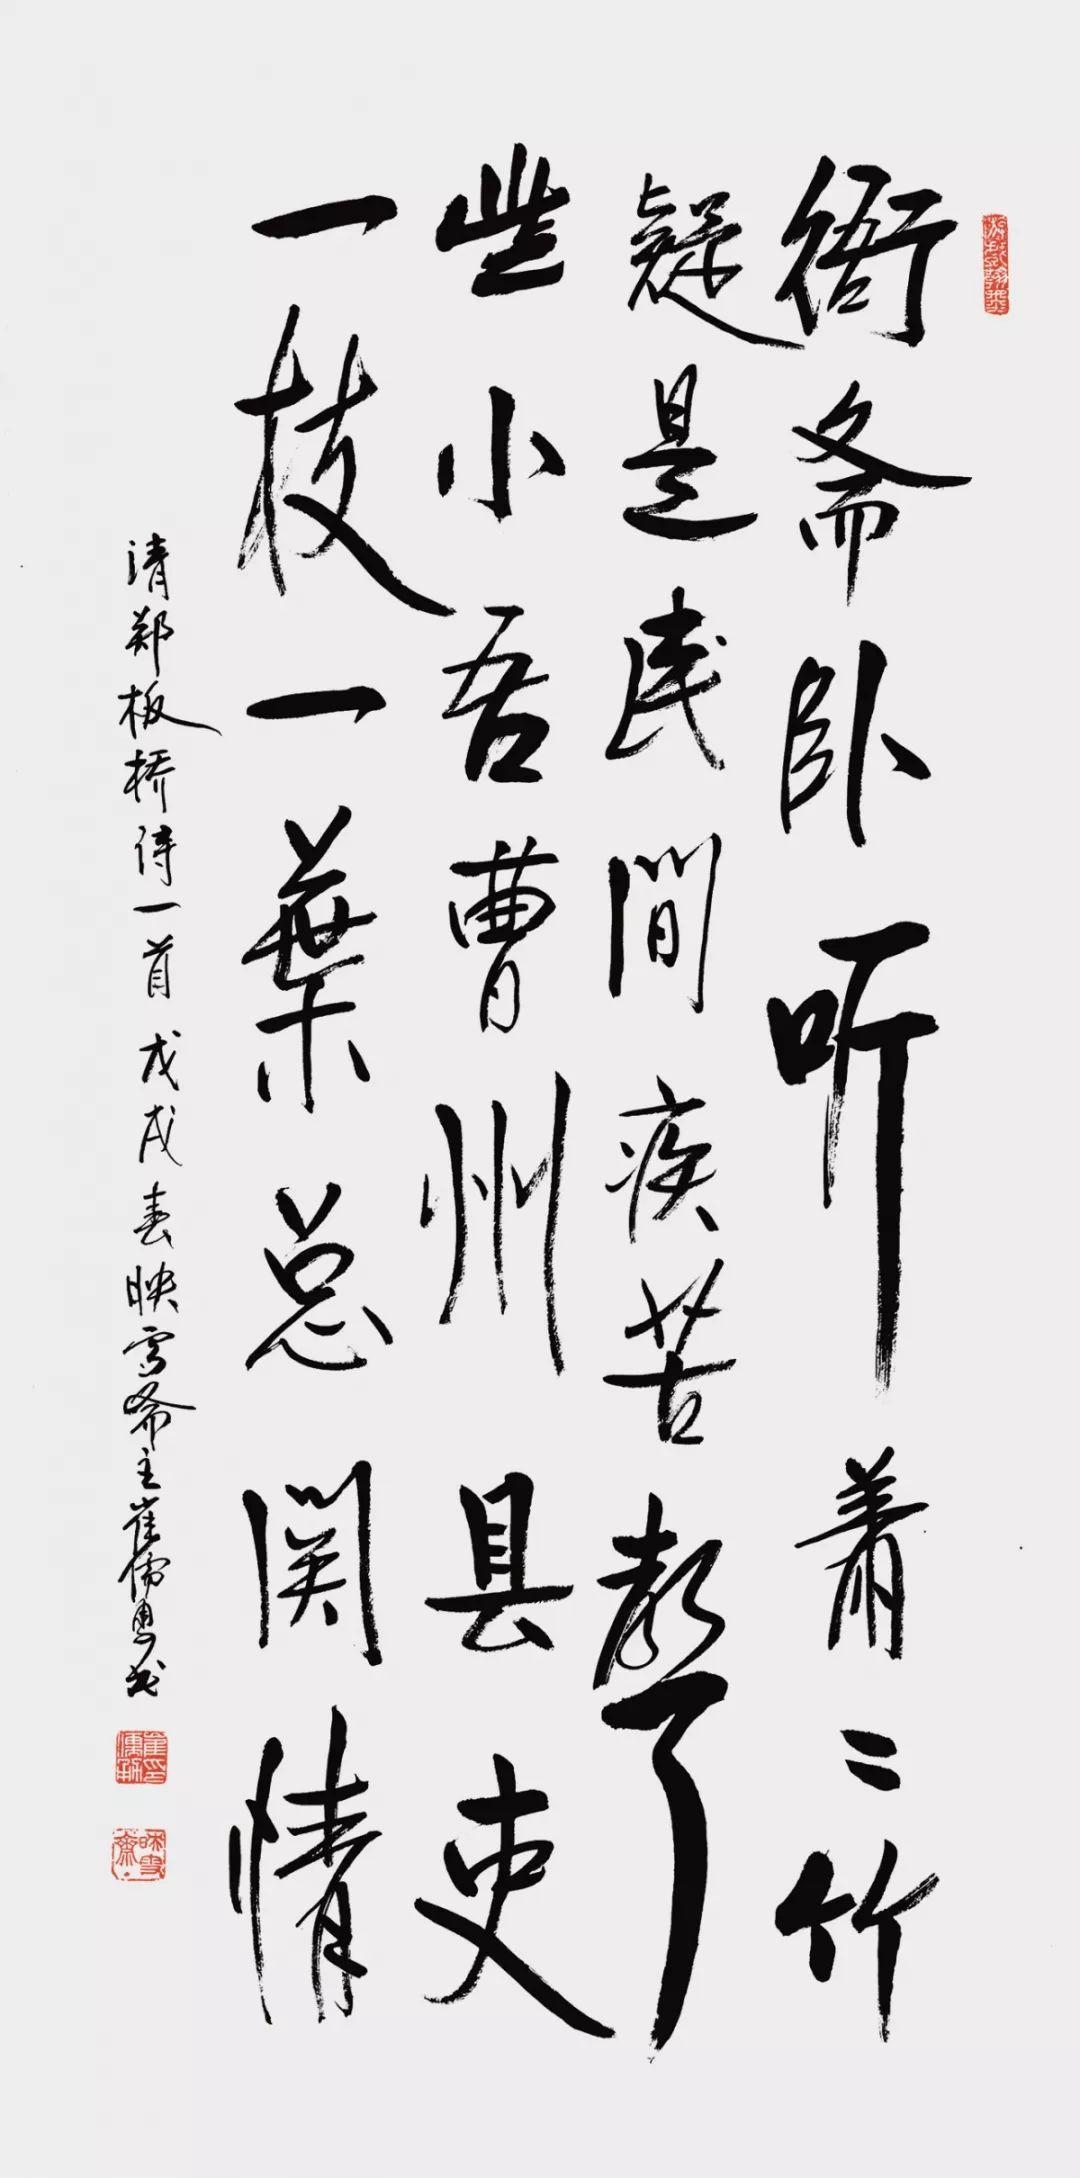 衙斋卧听萧〻竹
疑是民間疾苦聲
些小吾曹州县吏
一枝一葉总関情
清郑板桥诗一首 戊戌春映雪斋主崔儒勇书